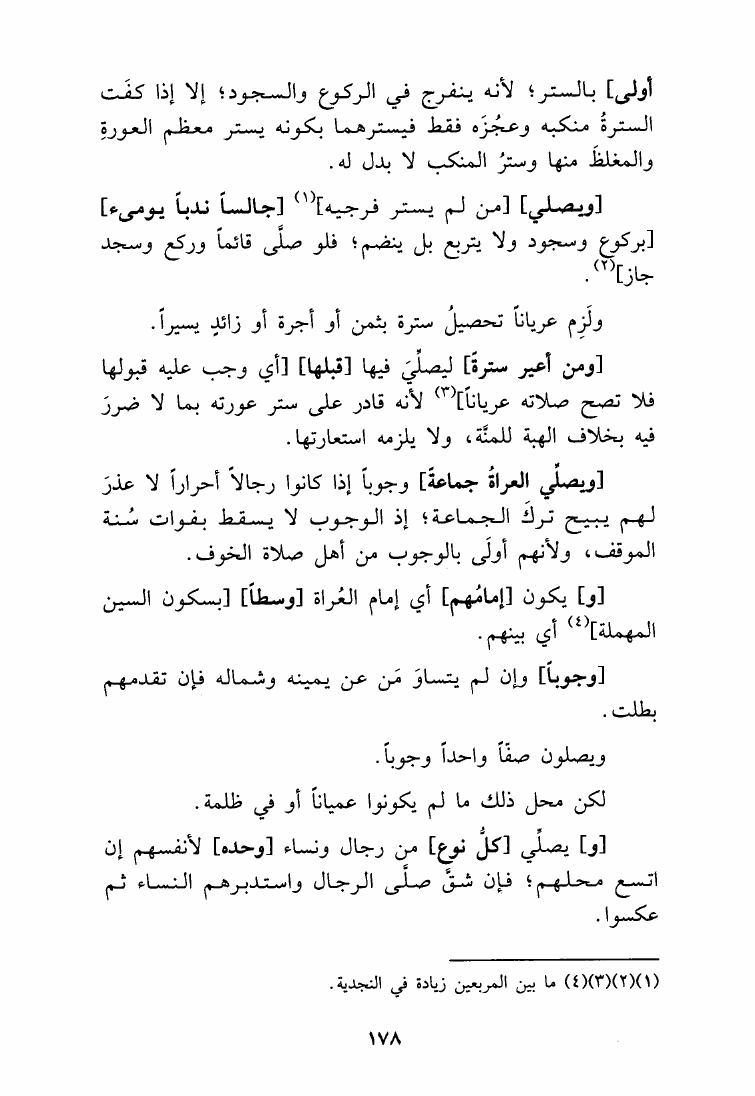 أولى] بالستر؛ لأنه ينفرج في الركوع والسجود؛ إلا إذا كفَت
السترةُ منكبه وعجُزَه فقط فيسترهما بكونه يستر معظم العورةِ
والمغلظَ منها وسترُ المنكب لا بدل له.
[ويصلي] [من لم يستر فرجيه]⁽¹⁾ [جالساً ندباً يومىء]
[بركوع وسجود ولا يتربع بل ينضم؛ فلو صلَّى قائماً وركع وسجد
جاز]⁽٢⁾.
ولَزِم عرياناً تحصيلُ سترة بثمن أو أجرة أو زائدٍ يسيراً.
[ومن أعير سترةً] ليصلِّيَ فيها [قبلها] [أي وجب عليه قبولها
فلا تصح صلاته عرياناً]⁽٣⁾ لأنه قادر على ستر عورته بما لا ضررَ
فيه بخلاف الهبة للمنَّة، ولا يلزمه استعارتها.
[ويصلِّي العراةُ جماعةً] وجوباً إذا كانوا رجالاً أحراراً لا عذرَ
لهم يبيح تركَ الجماعة؛ إذ الوجوب لا يسقط بفوات سُنة
الموقف، ولأنهم أولَى بالوجوب من أهل صلاة الخوف.
[و] يكون [إمامُهم] أي إمام العُراة [وسطاً] [بسكون السين
المهملة]⁽٤⁾ أي بينهم.
[وجوباً] وإن لم يتساوَ مَن عن يمينه وشماله فإن تقدمهم
بطلت.
ويصلون صفّاً واحداً وجوباً.
لكن محل ذلك ما لم يكونوا عمياناً أو في ظلمة.
[و] يصلِّي [كلُّ نوع] من رجال ونساء [وحده] لأنفسهم إن
اتسع محلهم؛ فإن شقَّ صلَّى الرجال واستدبرهم النساء ثم
عكسوا.
(١)(٢)(٣)(٤) ما بين المربعين زيادة في النجدية.
١٧٨